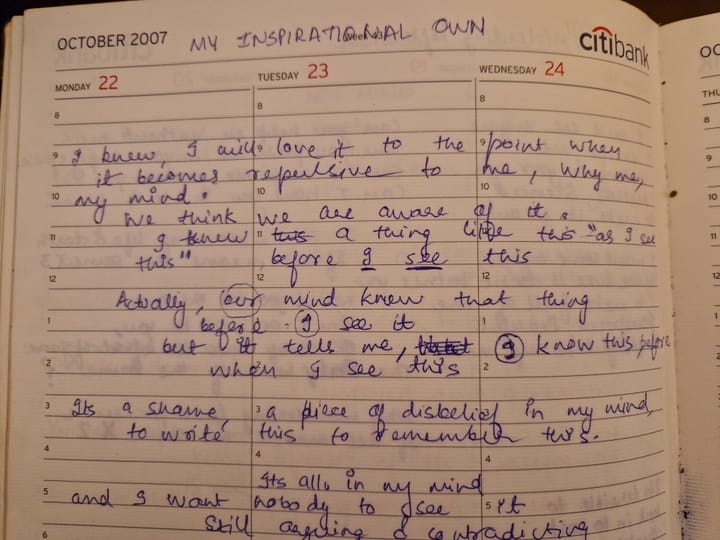 MY INSPIRATIONAL OWN
OCTOBER 2007
citibank
MONDAY 22
TUESDAY 23
WEDNESDAY 24
THU
8 8 8 8
I knew, I will love it to the point when
9 9 9 9
it becomes repulsive to me, why me,
10 10 10 10
my mind.
we think we are aware of it.
11 11 11
I knew this a thing like this "as I see
this" before I see this
12 12 12 12
Actually, our mind knew that thing
before I see it
1 1 1
but it tells me, I know this before
2 2 2 2
when I see this
Its a shame, a piece of disbelief in my mind,
3 3 3 3
to write this to remember this.
4 4 4 4
Its all in my mind
5 5 5
and I want nobody to see it
Still arguing & contradicting
6